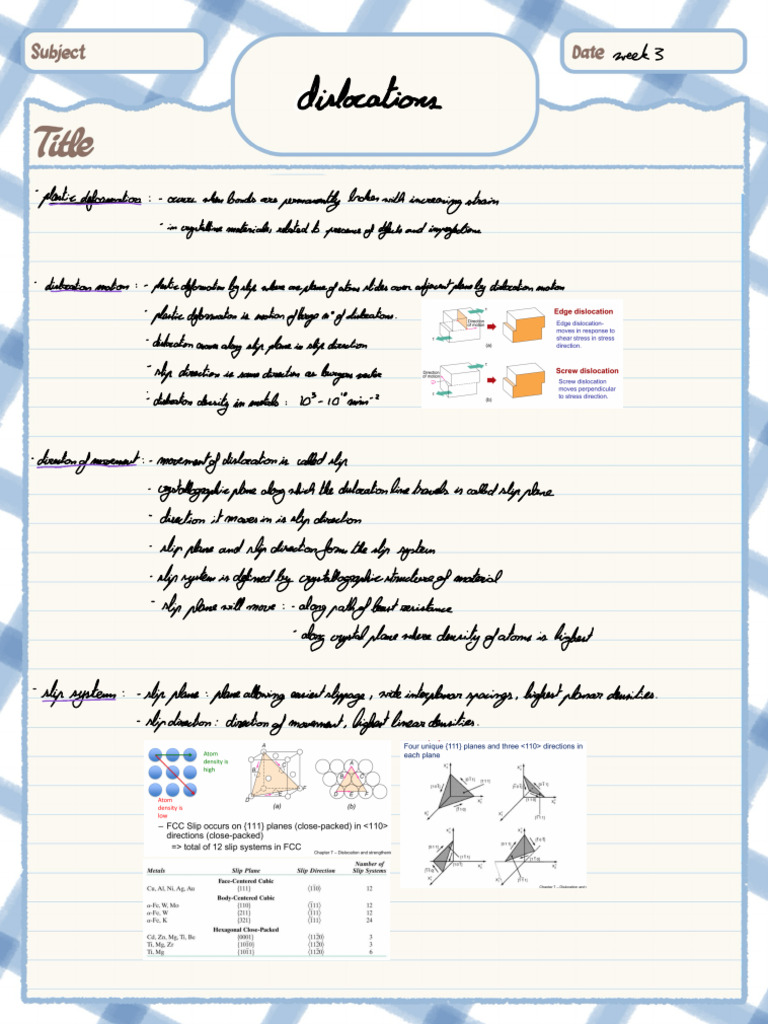 Subject
dislocations
Date week 3
Title
· plastic deformation : - occurs when bonds are permanently broken with increasing strain
· in crystalline materials, related to presence of defects and imperfections
· dislocation motion : - plastic deformation by slip where one plane of atoms slides over adjacent plane by dislocation motion
· plastic deformation is motion of large n° of dislocations.
- dislocation moves along slip plane in slip direction
- slip direction is same direction as burgers vector
- dislocation density in metals : 10³ - 10¹⁰ mm⁻²
Direction of motion
(a)
Edge dislocation
Edge dislocation-
moves in response to
shear stress in stress
direction.
Direction
of motion
(b)
Screw dislocation
Screw dislocation
moves perpendicular
to stress direction.
· direction of movement : - movement of dislocation is called slip
- crystallographic plane along which the dislocation line travels is called slip plane
- direction it moves in is slip direction
- slip plane and slip direction form the slip system
- slip system is defined by crystallographic structure of material
- slip plane will move : - along path of least resistance
- along crystal plane where density of atoms is highest
- slip system : - slip plane : plane allowing easiest slippage, wide interplanar spacings, highest planar densities.
- slip direction : direction of movement, highest linear densities.
Atom
density is
high
Atom
density is
low
A
B
C
D
E
F
(a)
A
B
C
D
E
F
(b)
– FCC Slip occurs on {111} planes (close-packed) in <110>
directions (close-packed)
=> total of 12 slip systems in FCC
Chapter 7 – Dislocation and strengthen
Metals Slip Plane Slip Direction Number of Slip Systems
Face-Centered Cubic
Cu, Al, Ni, Ag, Au {111} ⟨11̄0⟩ 12
Body-Centered Cubic
α-Fe, W, Mo {110} ⟨1̄11⟩ 12
α-Fe, W {211} ⟨1̄11⟩ 12
α-Fe, K {321} ⟨1̄11⟩ 24
Hexagonal Close-Packed
Cd, Zn, Mg, Ti, Be {0001} ⟨112̄0⟩ 3
Ti, Mg, Zr {101̄0} ⟨112̄0⟩ 3
Ti, Mg {101̄1} ⟨112̄0⟩ 6
Four unique {111} planes and three <110> directions in
each plane
Chapter 7 – Dislocation and